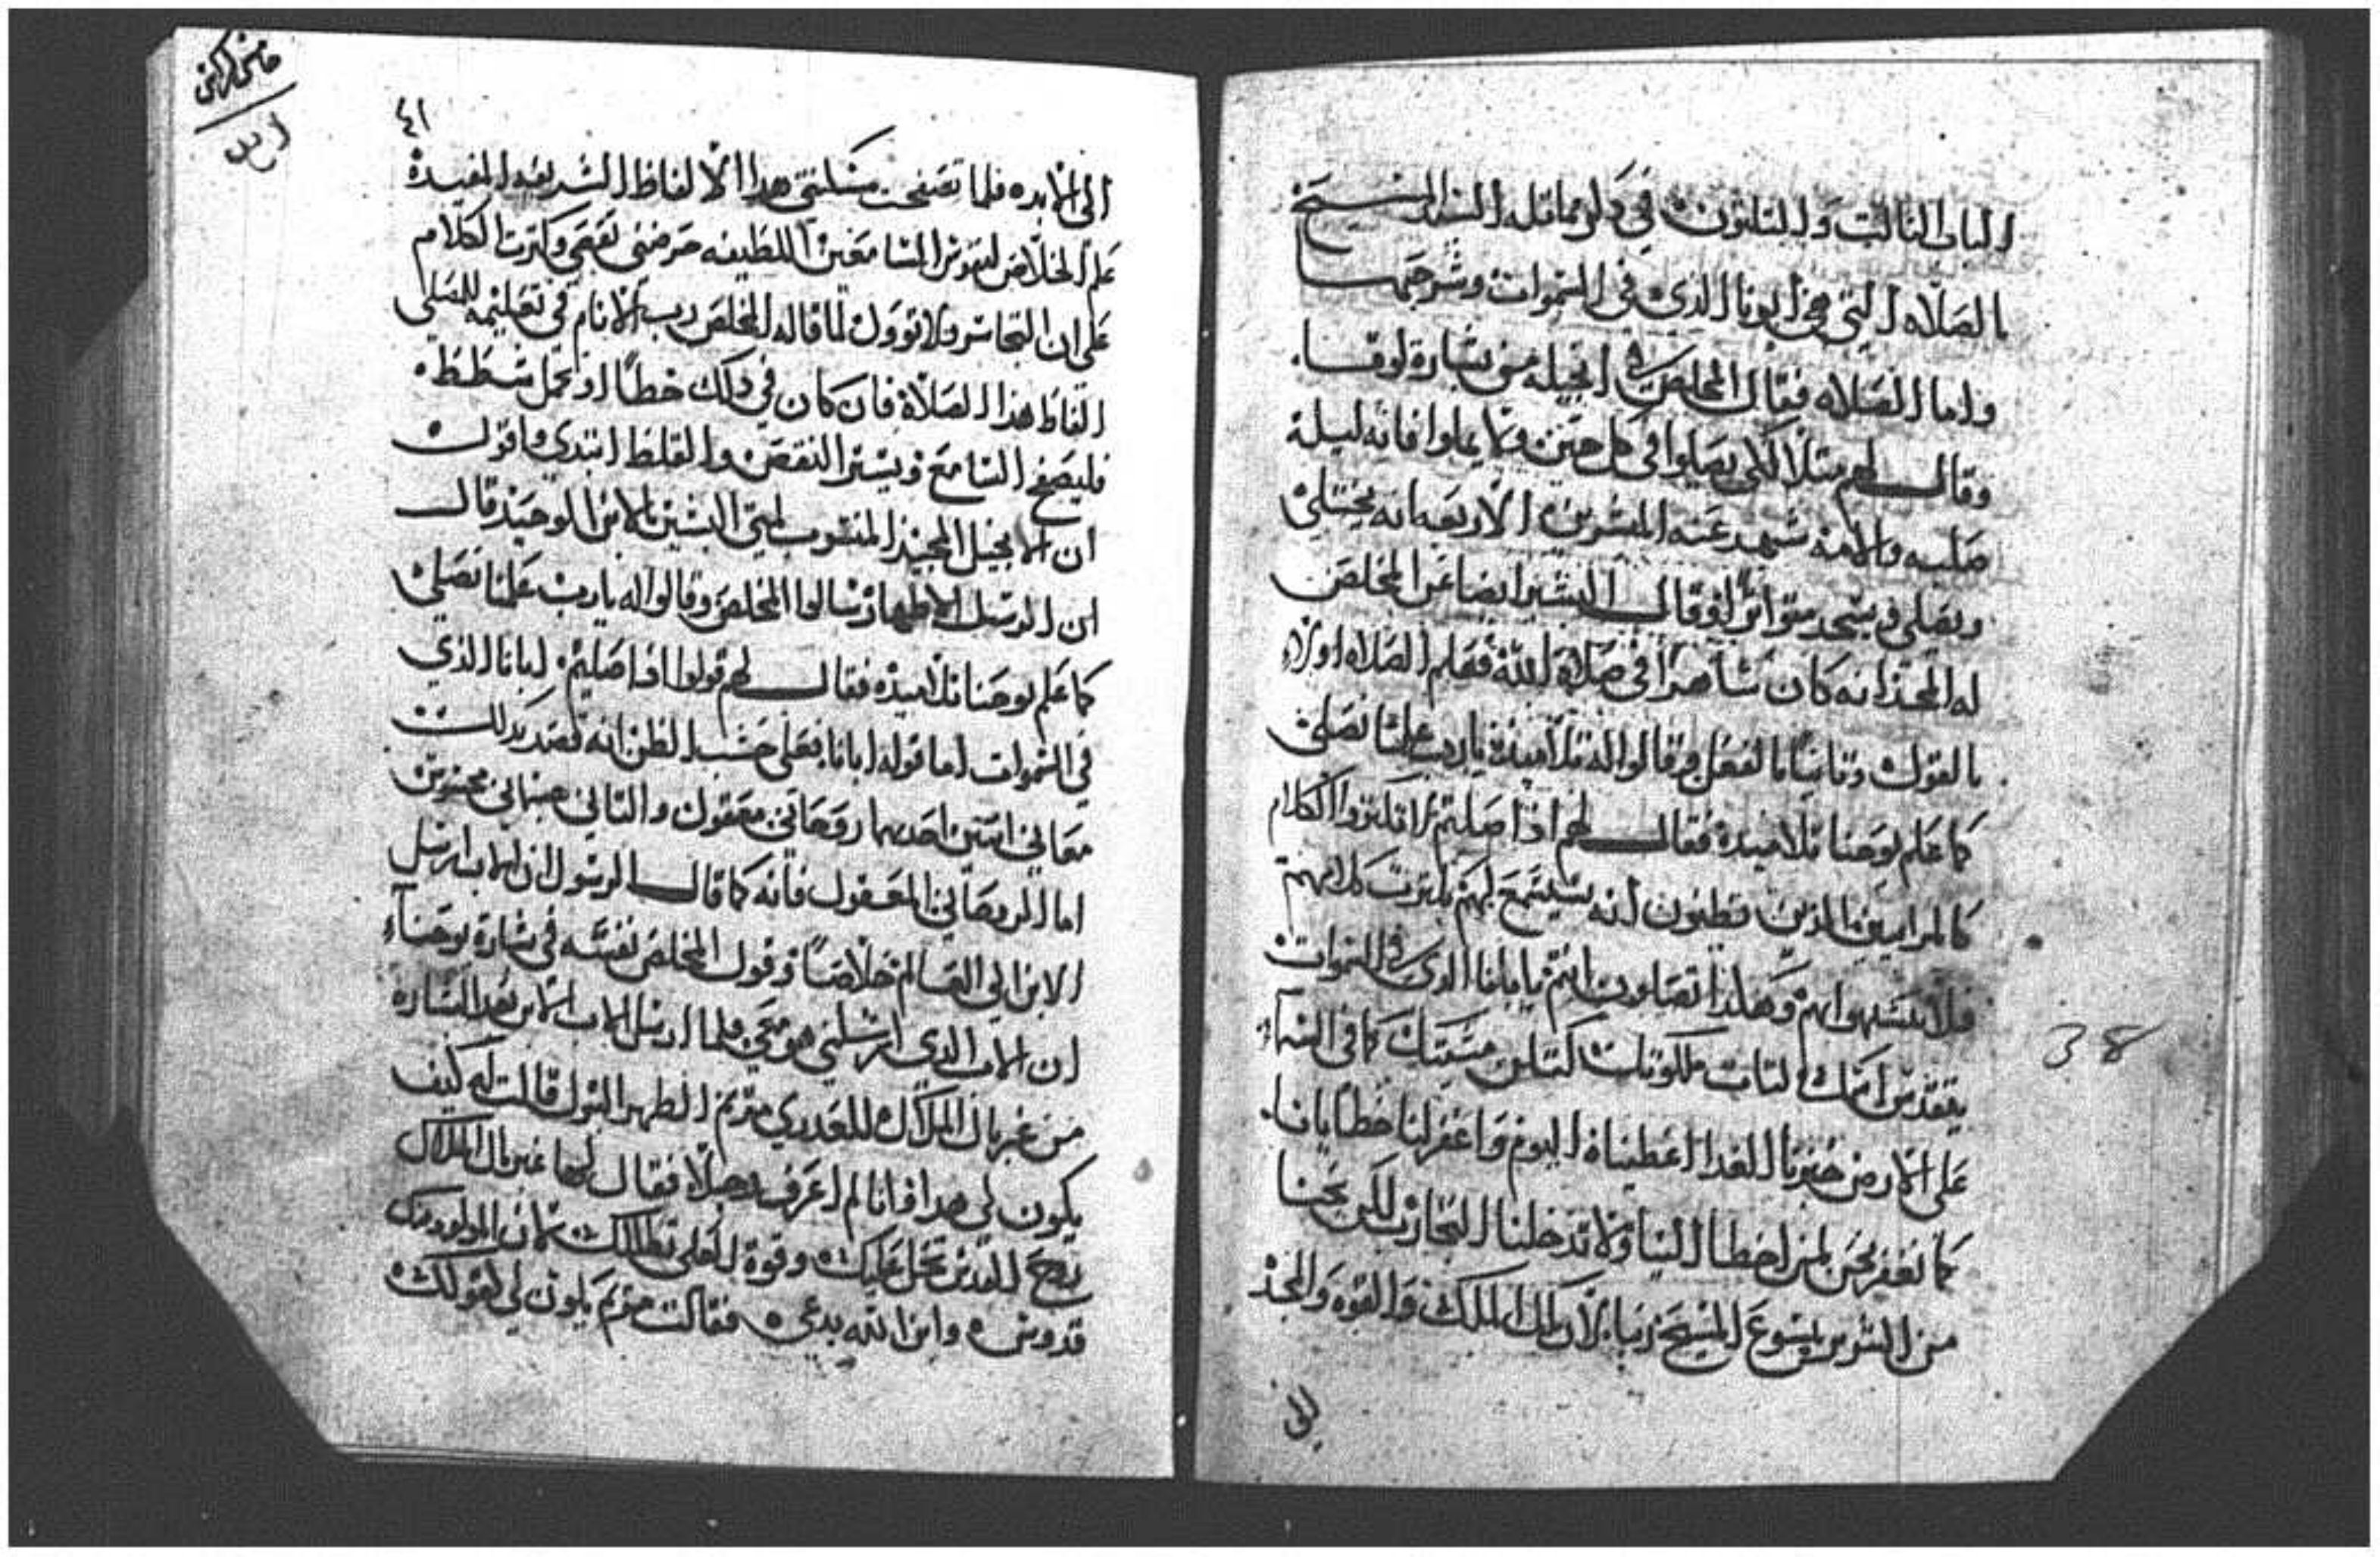 الباب الثالث والثلثون في دلو ما قبله السيد المسيح
الصلاه التي هي أبونا الذي في السموات وشرحها
واما الصلاه فقال المخلص في انجيله من بشارة لوقا.
وقال لهم مثلا لكي يصلوا في كل حين ولا يملوا فانه ليلة
صلبه والامه شهد عنه المبشرين الاربعه انه يختلي
ويصلي ويسجد متواترا وقال البشير ايضا عن المخلص
له المجد انه كان ساهرا في صلاة الله فعلم الصلاه اولاء
بالقول وثانيا بالفعل وقالوا له تلاميذه يا رب علمنا نصلي
كما علم يوحنا تلاميذه فقال لهم اذا صليتم لا تكثروا الكلام
كالمراييين الذين يظنون انه يستمع لهم بكثرت كلامهم
فلا تتشبهوا بهم وهكذا تصلون انتم يا ابانا الذي في السموات
يتقدس اسمك لتات ملكوتك لتكن مسيتك كما في السماء
على الارض خبزنا للغدا اعطيناه اليوم واغفر لنا خطايانا.
كما نغفر نحن لمن اخطا الينا ولا تدخلنا التجارب لكن نجنا
من الشرير بيسوع المسيح ربنا لان لك الملك والقوه والمجد
الى
٣٨
٤١
الى الابد ه فلما تصفحت مسكنتي هدا الالفاظ الشريفه المفيدة
علم الخلاص لنفوس السامعين اللطيفه حرضني نقصي وكترت الكلام
على ان اتجاسر ولا توول لما قاله المخلص رب الانام في تعليمه للمصلي
الفاظ هذا الصلاة فان كان في دلك خطا او تحمل شطط ه
فليصفح السامع ويستر النقص والغلط ابتدي واقول ه
ان الانجيل المجيد المنسوب لمتى البشير بالابن الوحيد قال
ان الرسل الاطهار سالوا المخلص وقالوا له يا رب علمنا نصلي
كما علم يوحنا تلاميده فقال لهم قولوا اذا صليتم ابانا الذي
في السموات اما قوله ابانا فعلى حسب الظن انه قصد بدلك
معاني اتنين احدهما روحاني معقول والتاني جسماني محسوس
اما الروحاني المعقول فانه كما قال الرسول ان الاب ارسل
الابن الى العالم خلاصا وقول المخلص نفسه في بشارة يوحناء
ان الاب الذي ارسلني هو معي فلما ارسل الاب الابن بهدا البشاره
من غبريال الملاك للعدري مريم الطهر البتول قالت له كيف
يكون لي هدا وانا لم اعرف رجلا فقال لها غبريال الملاك
روح القدس تحل عليك وقوة العلي تظللك لان المولود منك
قدوس ه وابن الله يدعى ه فقالت مريم يكون لي كقولك